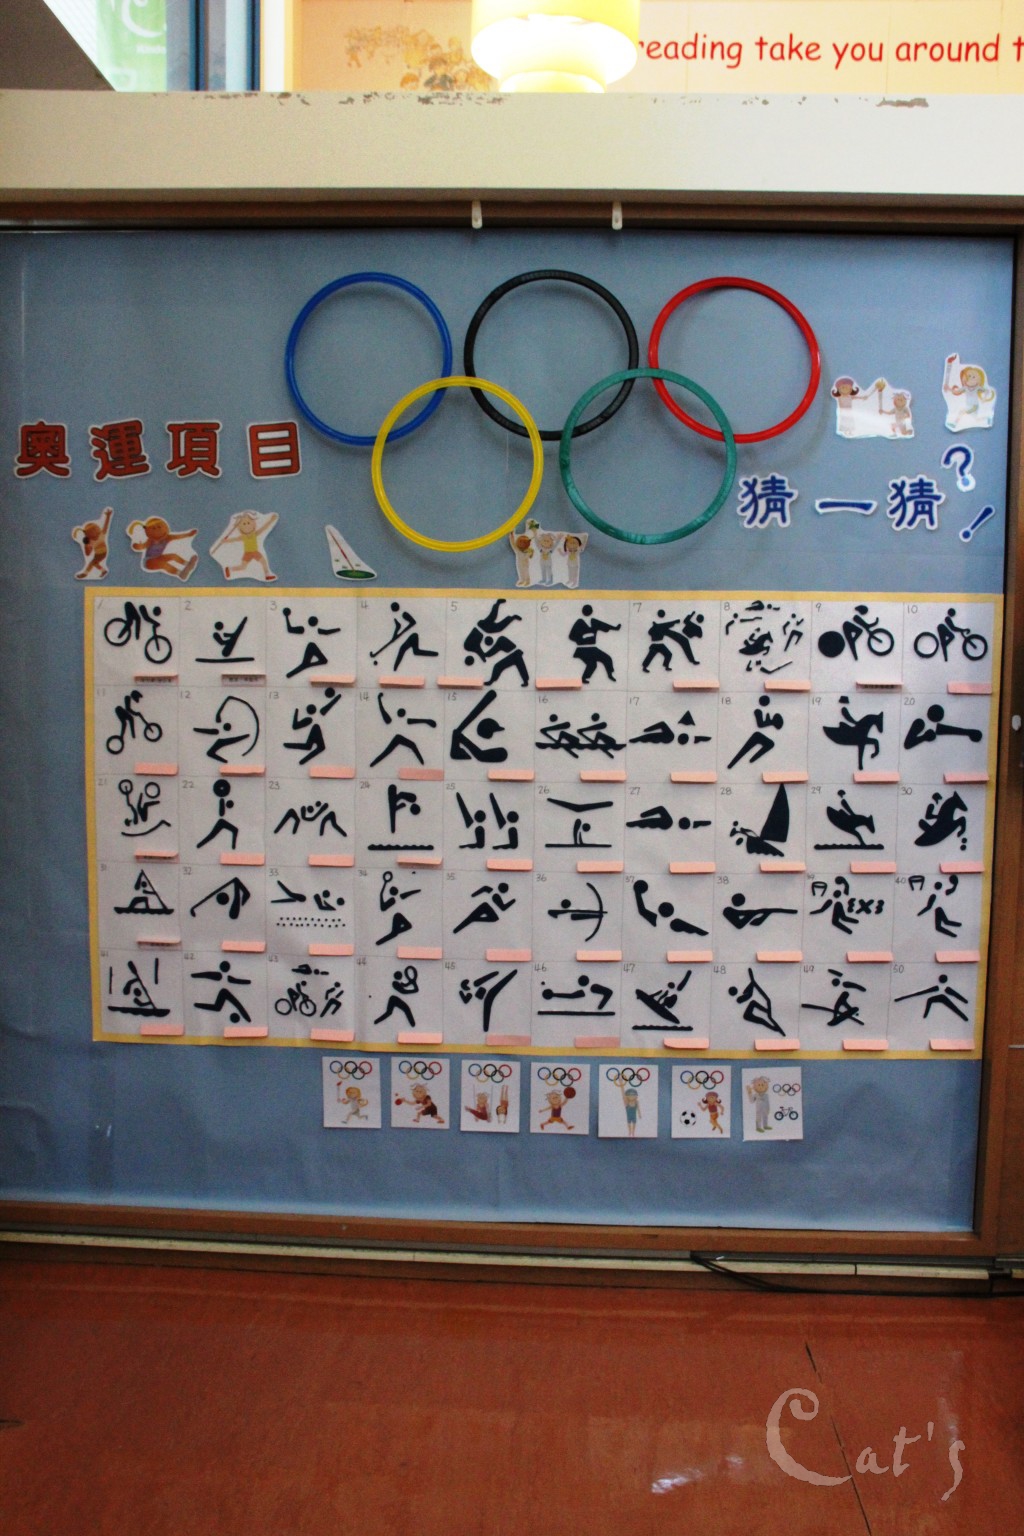 reading take you around t
奧運項目
猜一猜?!
1 2 3 4 5 6 7 8 9 10
11 12 13 14 15 16 17 18 19 20
21 22 23 24 25 26 27 28 29 30
31 32 33 34 35 36 37 38 39 40
41 42 43 44 45 46 47 48 49 50
Cat's